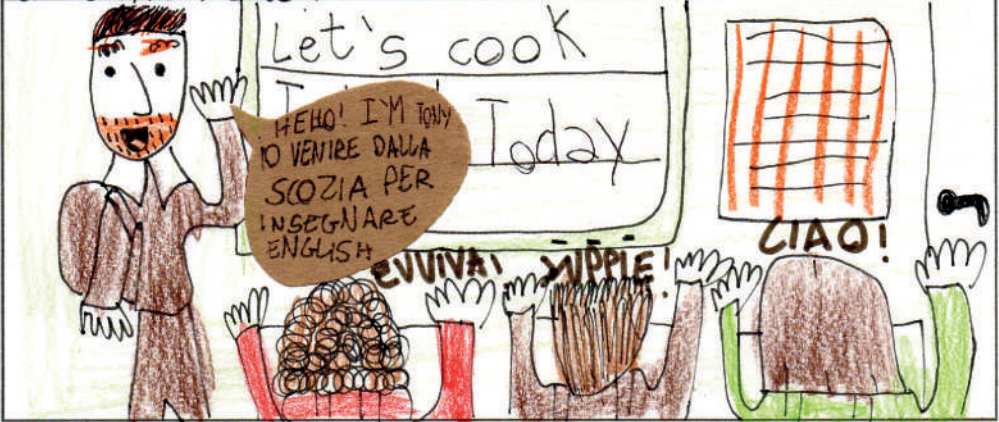 Let's cook
Today
HELLO! I'M TONY
IO VENIRE DALLA
SCOZIA PER
INSEGNARE
ENGLISH
EVVIVA!
YUPPIE!
CIAO!